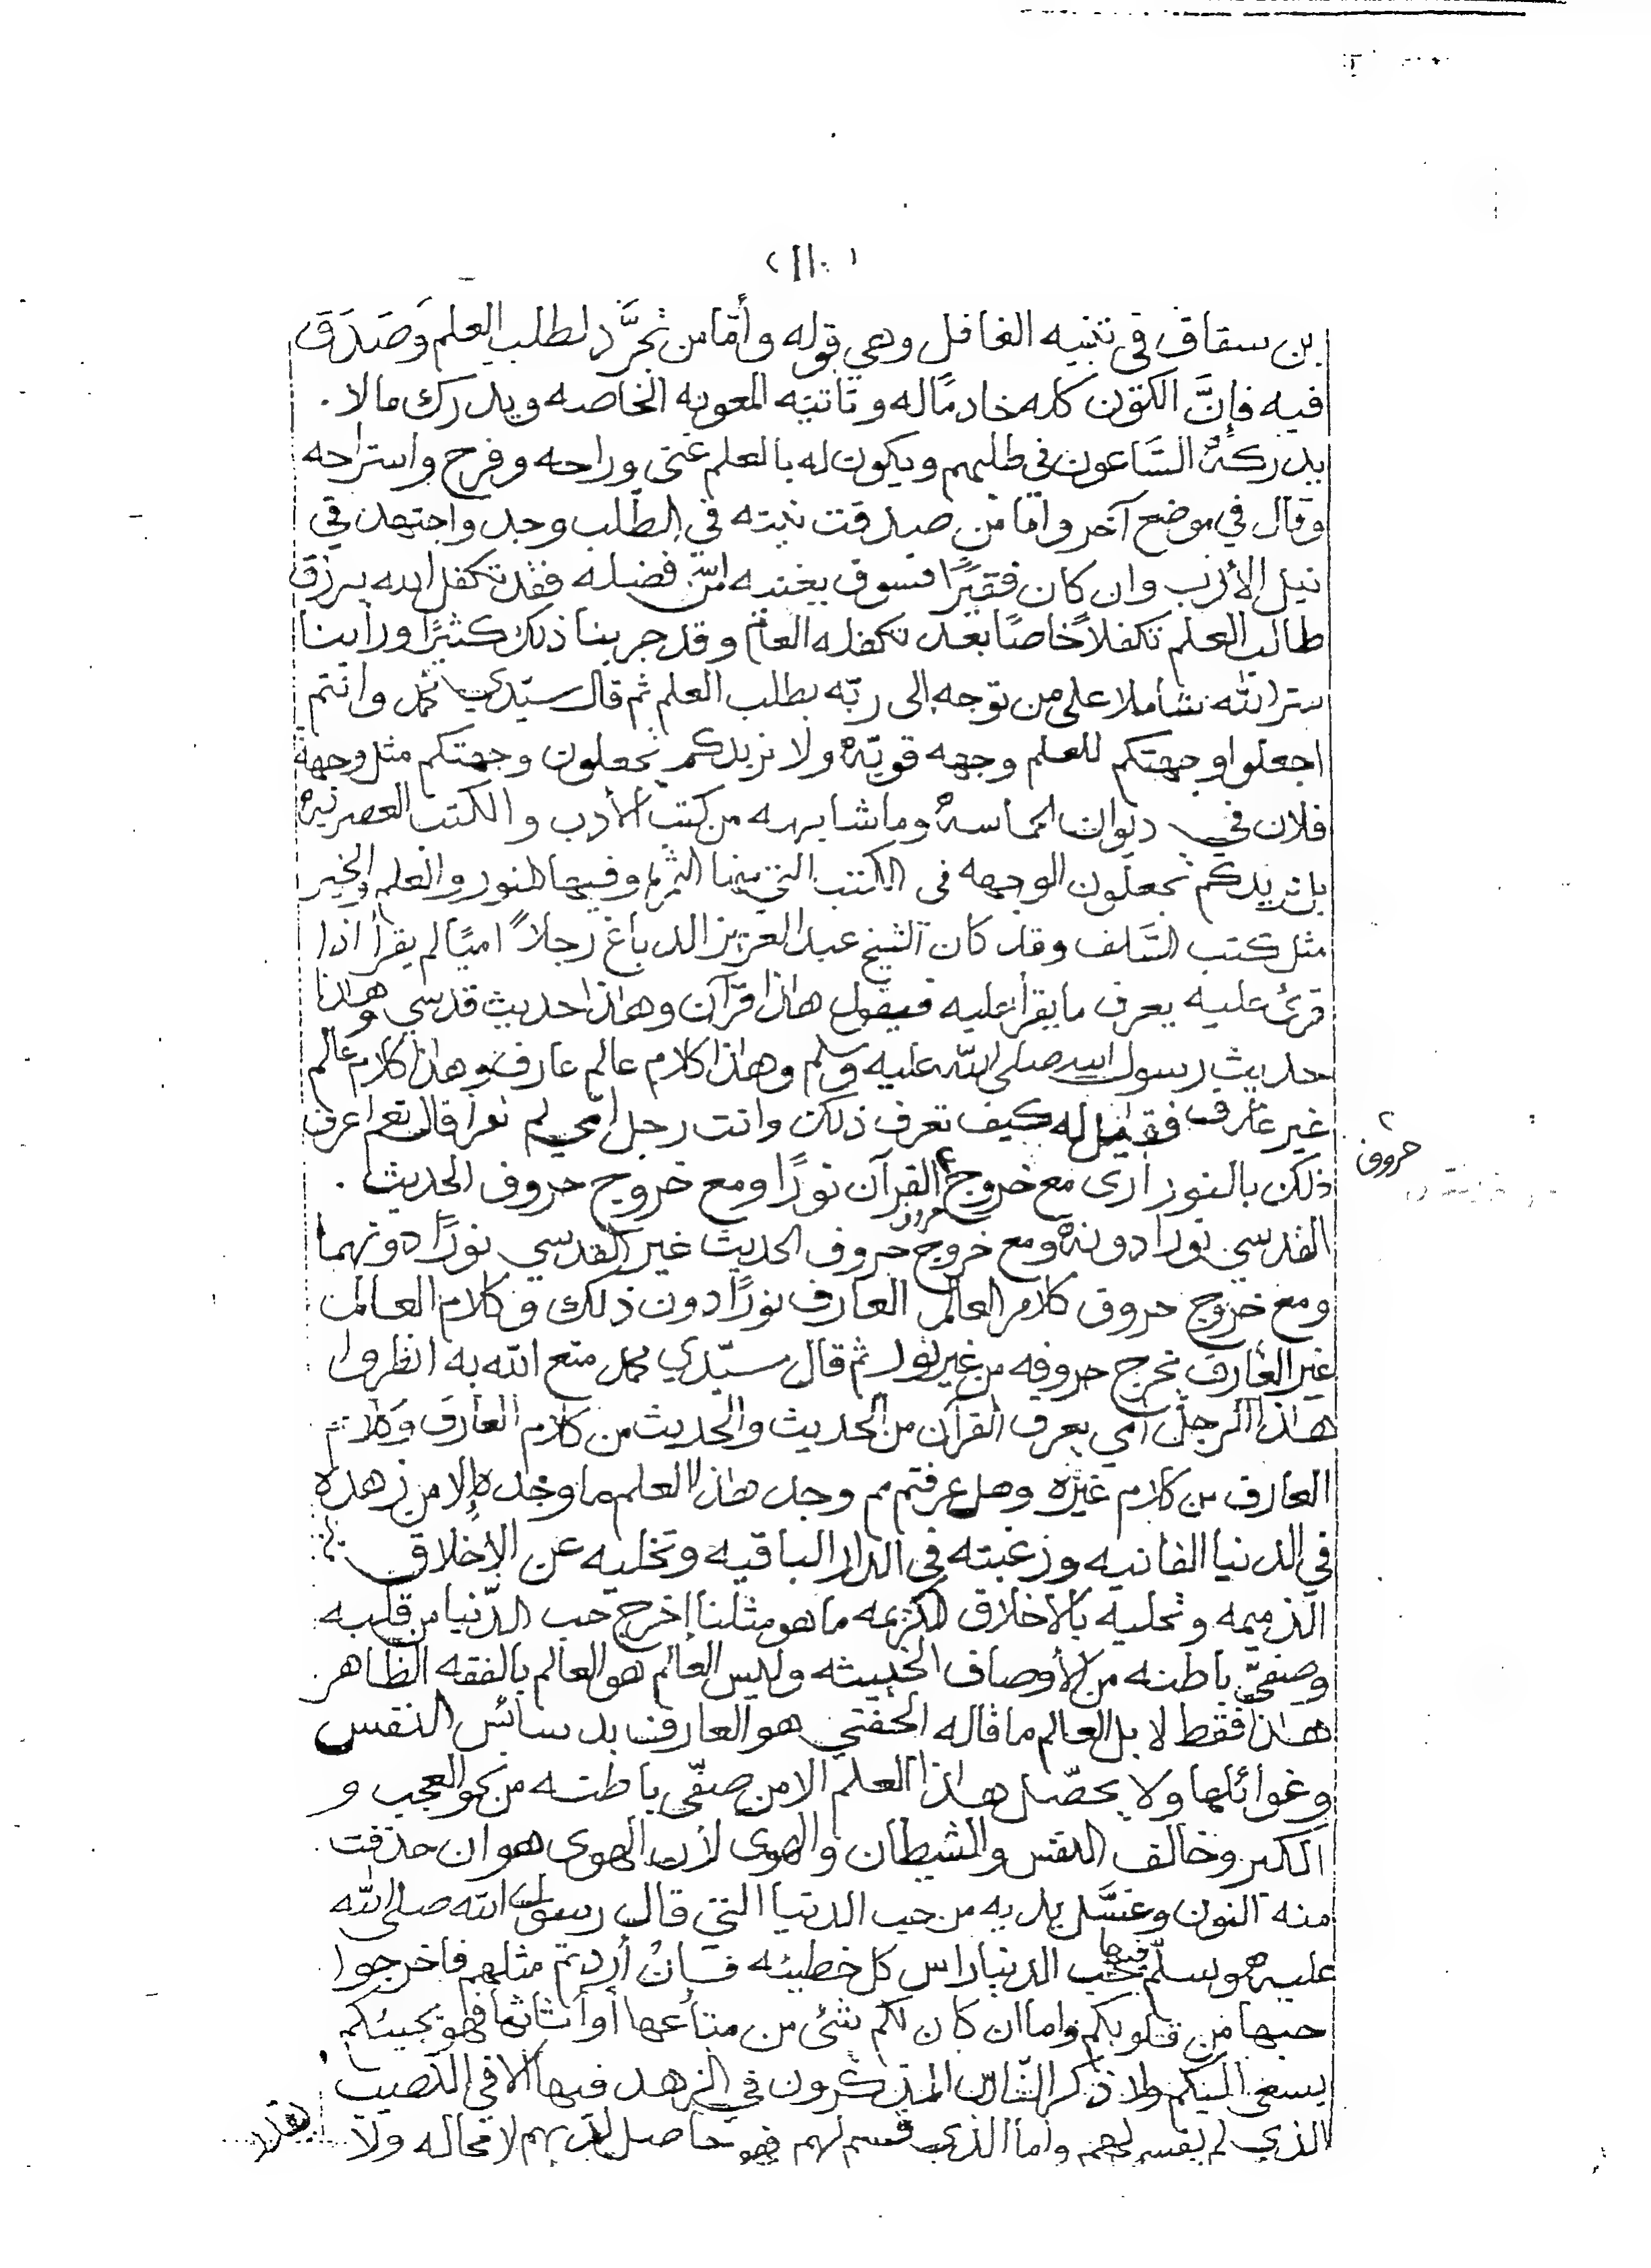 (١١٠)
بن سقاف في تنبيه الغافل وهي قوله وأمّا من تجرَّد لطلب العلم وَصَدَقَ
فيه فإنَّ الكون كله خادمًا له وتأتيه المعونه الخاصه ويدرك مالا .
يدركهُ السَّاعون في طلبهم ويكون له بالعلم غنى وراحه وفرح واستراحه
وقال في موضع آخر وأما من صدقت نيته في الطّلب وجد واجتهد في
نيل الأرب وان كان فقيرًا فسوف يغنيه الله من فضله فقد تكفل الله برزق
طالب العلم تكفلاً خاصًا بعد تكفله العام وقد جربنا ذلك كثيرًا ورأينا
ستر الله شاملا على من توجه إلى ربّه بطلب العلم ثم قال سيّدي محمد وانتم
اجعلوا وجهتكم للعلم وجهه قويّهْ ولا نريدكم تجعلون وجهتكم مثل وجهة
فلان في ديوان الحماسهْ وما شابهه من كتب الأدب والكتب العصريهْ
بل نريدكم تجعلون الوجهه في الكتب التي فيها الثمرة وفيها النور والعلم والخير
مثل كتب السَّلف وقد كان الشيخ عبدالعزيز الدباغ رجلاً اميًا لم يقرأ اذا
قرئ عليه يعرف ما يقرأ عليه فيقول هاذا قرآن وهاذا حديث قدسي وهاذا
حديث رسول الله صلى الله عليه وسلم وهاذا كلام عالم عارف وهاذا كلام عالم
غير عارف فقيل له كيف تعرف ذلك وانت رجل امي لم تقرأ قال نعم اعرف
ذلك بالنور ارى مع خروج القرآن نورًا ومع خروج حروف الحديث .
حروف
القدسي نورا دونهْ ومع خروج حروف الحديث غير القدسي نورًا دونهما
ومع خروج حروف كلام العالم العارف نورًا دون ذلك وكلام العالم
غير العارف تخرج حروفه من غير نور ثم قال سيّدي محمد متع الله به انظروا
هاذا الرجل امي يعرف القرآن من الحديث والحديث من كلام العارف وكلام
العارف من كلام غيره وهل عرفتم مم وجد هاذا العلم ما وجده إلا من زهده
في الدنيا الفانيه ورغبته في الدار الباقيه وتخليه عن الأخلاق
الذميمه وتحليه بالأخلاق الكريمه ما هو مثلنا إخرج حب الدّنيا من قلبه
وصفيّ باطنه من الأوصاف الخبيثه وليس العالم هو العالم بالفقه الظاهر
هاذا فقط لا بل العالم ما قاله الحفني هو العارف بدسائس النفس
وغوائلها ولا يحصّل هاذا العلم الا من صفّى باطنه من نحو العجب و
الكبر وخالف النفس والشيطان والهوى لأن الهوى هوان حذفت
منه النون وغسَّل يديه من حب الدنيا التي قال رسول الله صلى الله
عليه وسلم فيها حب الدنيا راس كل خطيئه فإن أردتم مثلهم فاخرجوا
حبها من قلوبكم واما ان كان لكم شئ من متاعها أو أثاثها فهو يجيئكم
يسعى اليكم ولا ذكر النّاس المذكرون في الزهد فيها الا في النصيب
الذي لم يقسم لهم واما الذي قسم لهم فهو حاصل لديهم لا محاله ولا
يقدر